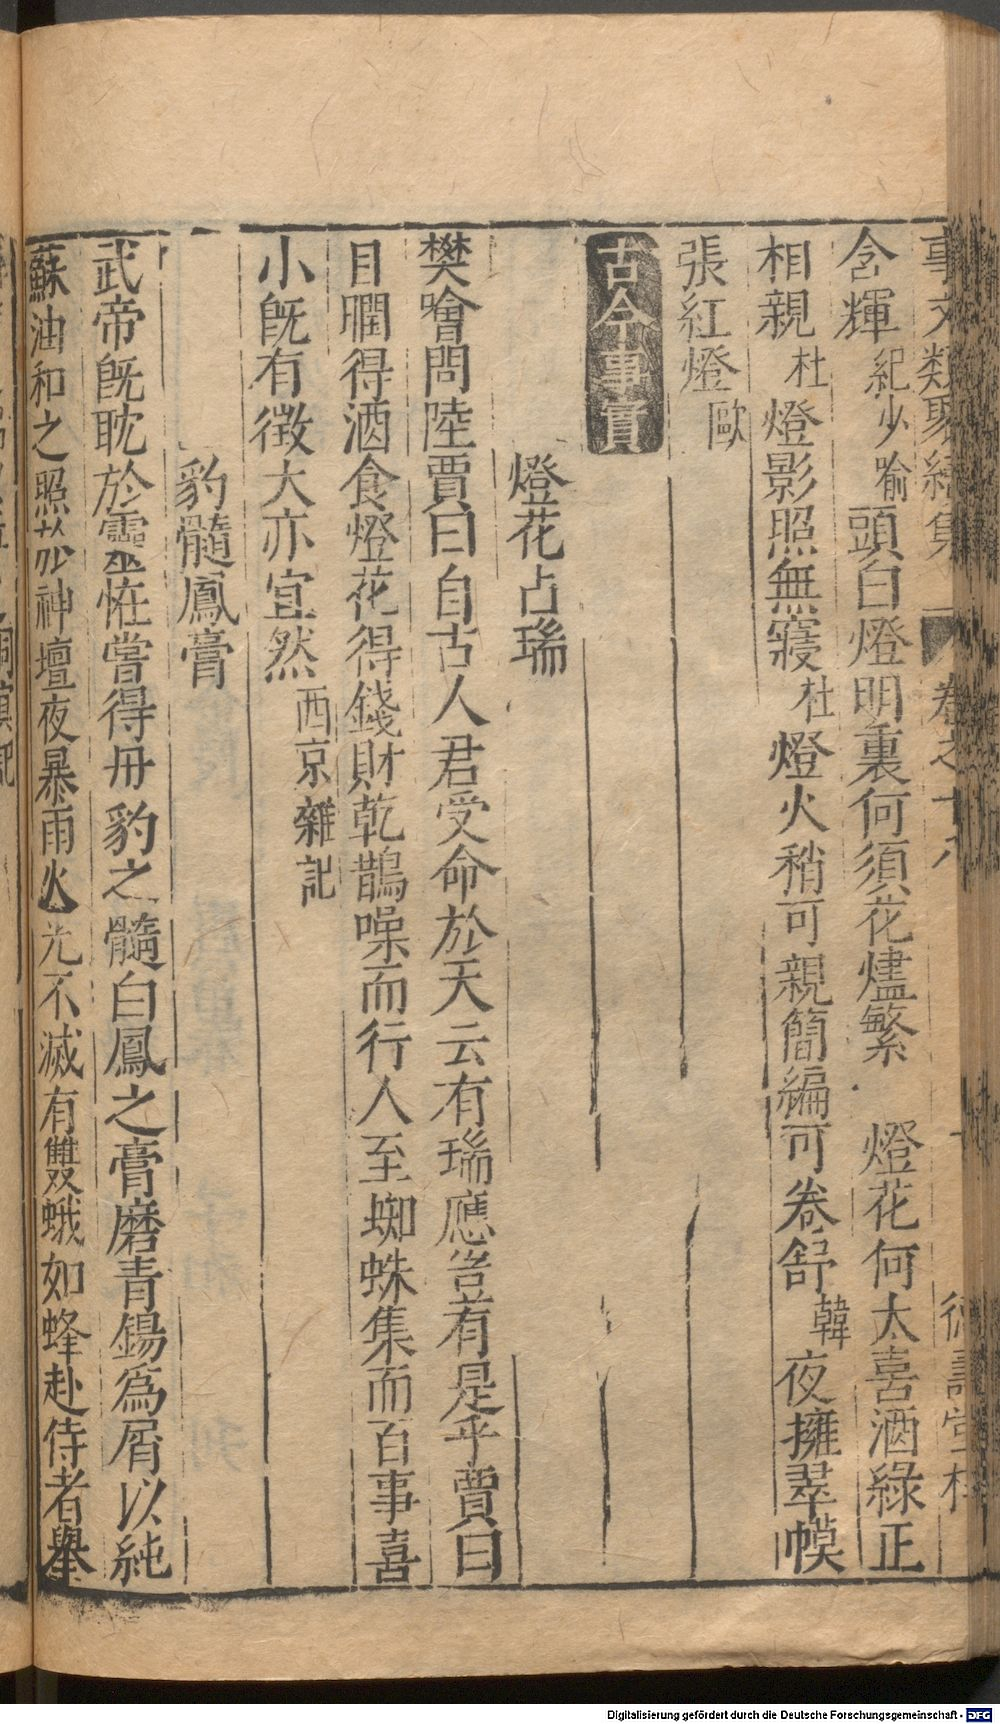 事文類聚續集 卷之十八 十 德壽堂梓
含輝紀少喻頭白燈明裏何須花燼繁 燈花何太喜酒綠正
相親杜燈影照無寢杜燈火稍可親簡編可卷舒韓夜擁翠幙
張紅燈歐
古今事實
燈花占瑞
樊噲問陸賈曰自古人君受命於天云有瑞應豈有是乎賈曰
目瞤得酒食燈花得錢財乾鵲噪而行人至蜘蛛集而百事喜
小旣有徵大亦宜然西京雜記
豹髓鳳膏
武帝旣耽於靈怪嘗得丹豹之髓白鳳之膏磨青錫為屑以純
蘇油和之照於神壇夜暴雨火光不滅有雙蛾如蜂赴侍者舉
洞冥記
Digitalisierung gefördert durch die Deutsche Forschungsgemeinschaft - DFG